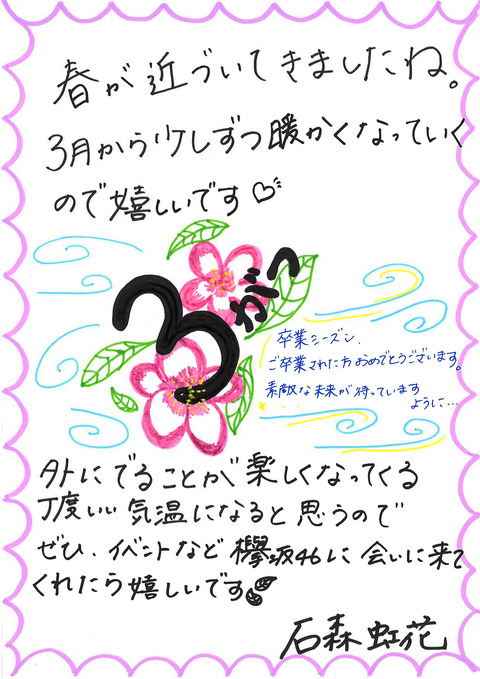 春が近づいてきましたね。
3月から少しずつ暖かくなっていく
ので嬉しいです♡
3がつ
卒業シーズン.
ご卒業された方おめでとうございます。
素敵な未来が待っています
ように…
外にでることが楽しくなってくる
丁度いい気温になると思うので
ぜひ、イベントなど欅坂46に会いに来て
くれたら嬉しいです
石森虹花